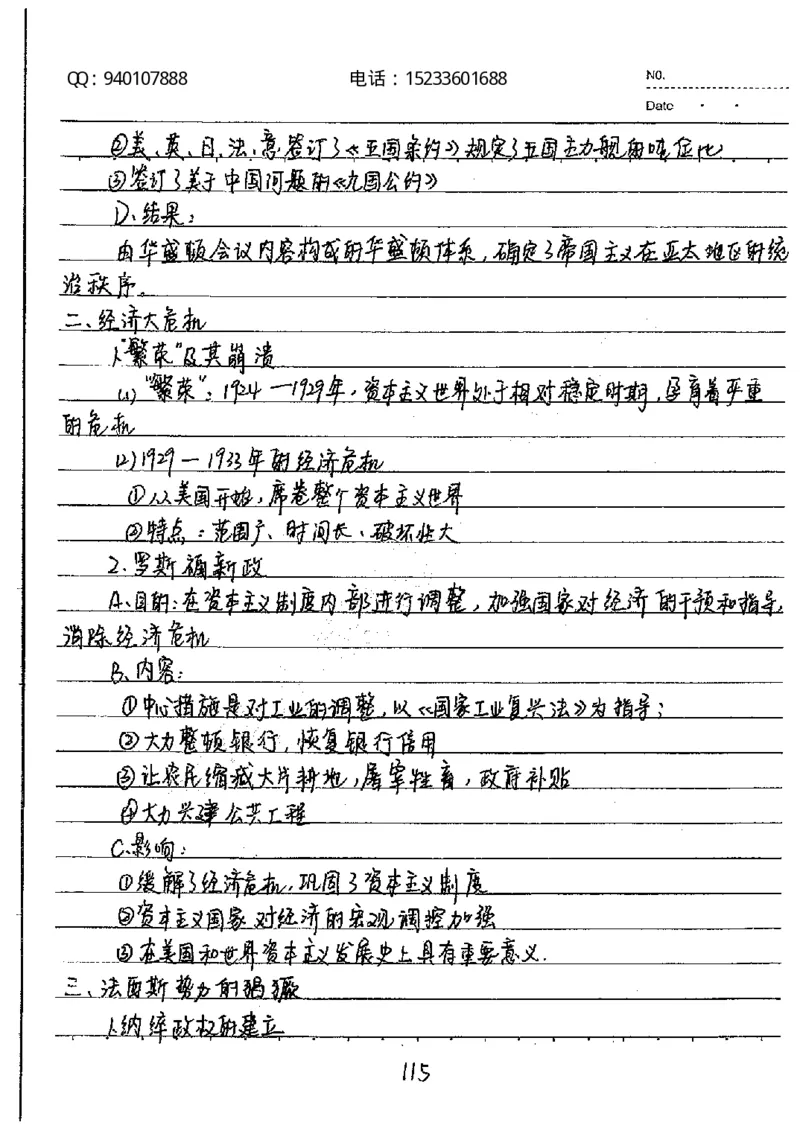 QQ：940107888 电话：15233601688 NO.
Date
②美、英、日、法、意签订了《五国条约》规定了五国主力舰的吨位比
③签订了关于中国问题的《九国公约》
D、结果：
由华盛顿会议内容构成的华盛顿体系，确定了帝国主义在亚太地区的统
治秩序。
二、经济大危机
1、"繁荣"及其崩溃
(1)"繁荣"：1924—1929年，资本主义世界处于相对稳定时期，孕育着严重
的危机
(2)1929—1933年的经济危机
①从美国开始，席卷整个资本主义世界
②特点：范围广、时间长、破坏性大
2、罗斯福新政
A、目的：在资本主义制度内部进行调整，加强国家对经济的干预和指导，
消除经济危机
B、内容：
①中心措施是对工业的调整，以《国家工业复兴法》为指导；
②大力整顿银行，恢复银行信用
③让农民缩减大片耕地，屠宰牲畜，政府补贴
④大力兴建公共工程
C、影响：
①缓解了经济危机，巩固了资本主义制度
②资本主义国家对经济的宏观调控加强
③在美国和世界资本主义发展史上具有重要意义.
三、法西斯势力的猖獗
1、纳粹政权的建立
115